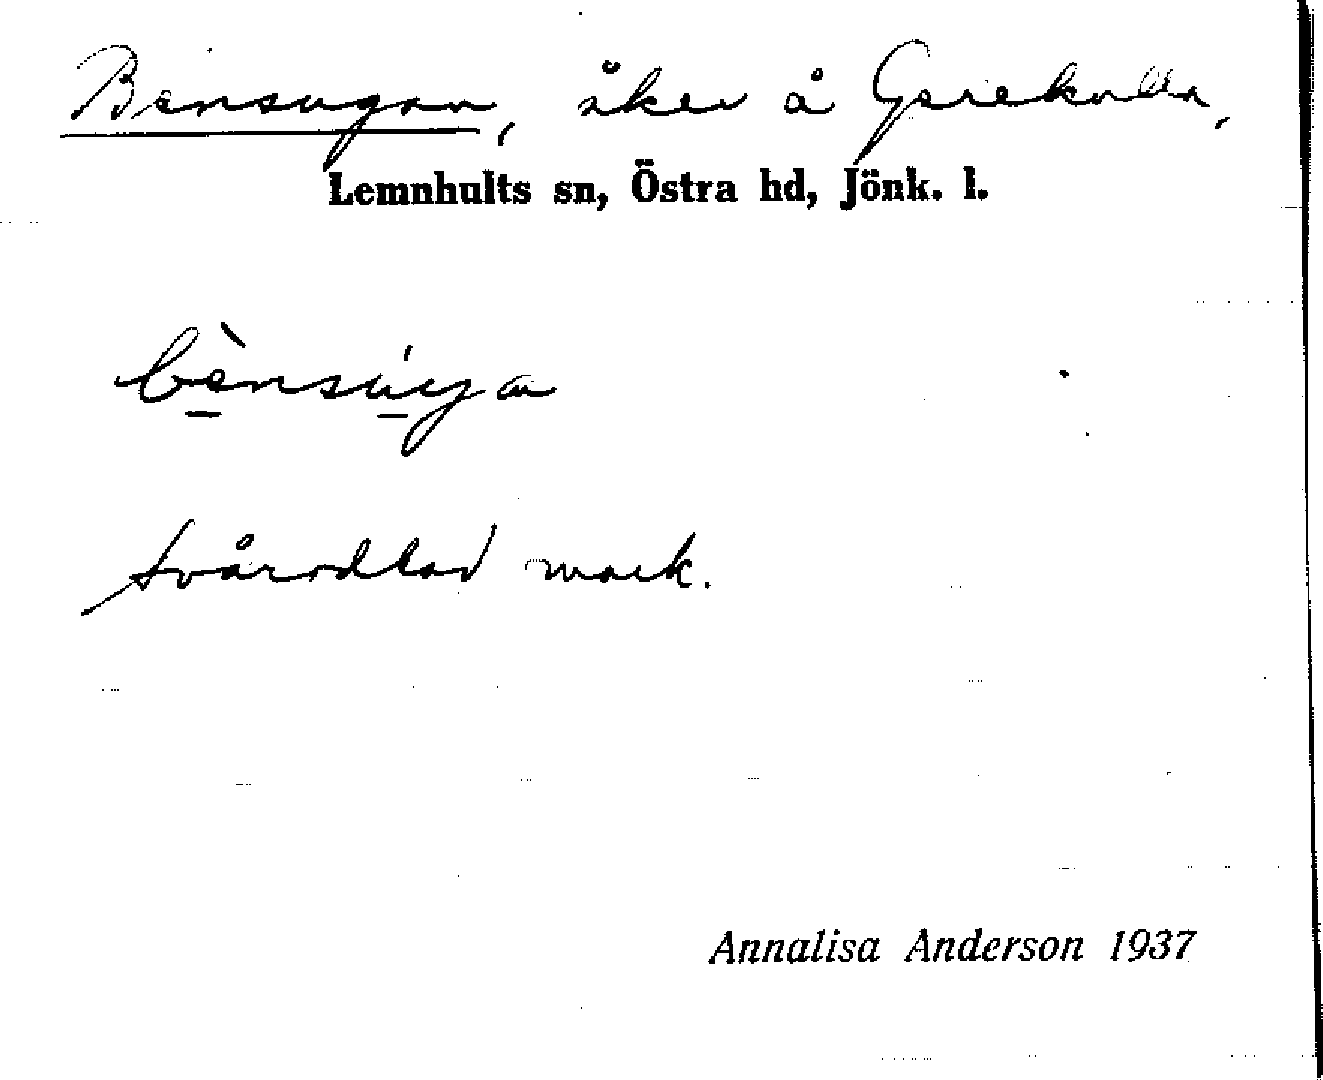 Bensugan, åker å Gerekulla,
Lemnhults sn, Östra hd, Jönk. l.
bènsúga
svårodlad mark.
Annalisa Anderson 1937